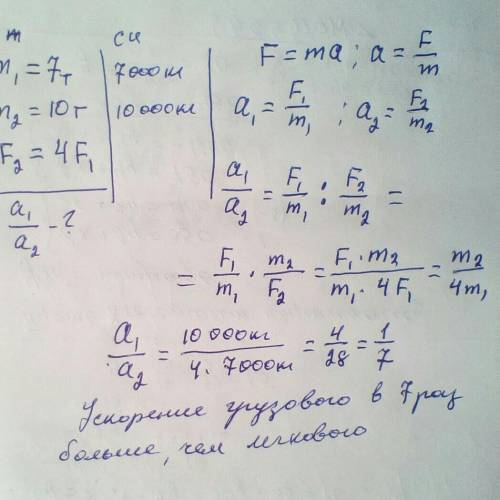 m си
m₁ = 7т 7000кг
m₂ = 10т 10000кг
F₂ = 4F₁
a₁/a₂ - ?
F = ma ; a = F/m
a₁ = F₁/m₁ ; a₂ = F₂/m₂
a₁/a₂ = F₁/m₁ : F₂/m₂ =
= F₁/m₁ · m₂/F₂ = F₁·m₂/m₁·4F₁ = m₂/4m₁
a₁/a₂ = 10000кг/4·7000кг = 4/28 = 1/7
Ускорение грузового в 7 раз
больше, чем легкового